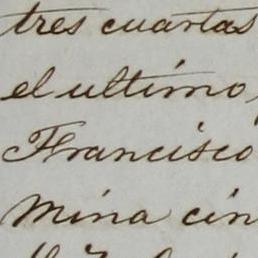 tres cuartas
el ultimo
Francisco
Mina cin